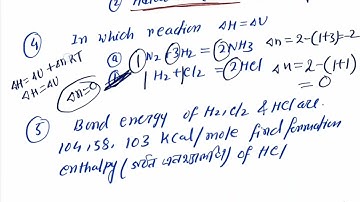 ④ In which reaction ΔH=ΔU
ΔH=ΔU+ΔnRT
ΔH=ΔU
Δn=0
ⓐ 1N₂+3H₂=2NH₃ Δn=2-(1+3)=-2
1H₂+1Cl₂=2HCl Δn=2-(1+1)
=0
⑤ Bond energy of H₂, Cl₂ & HCl are
104, 58, 103 Kcal/mole find formation
enthalpy ( ) of HCl